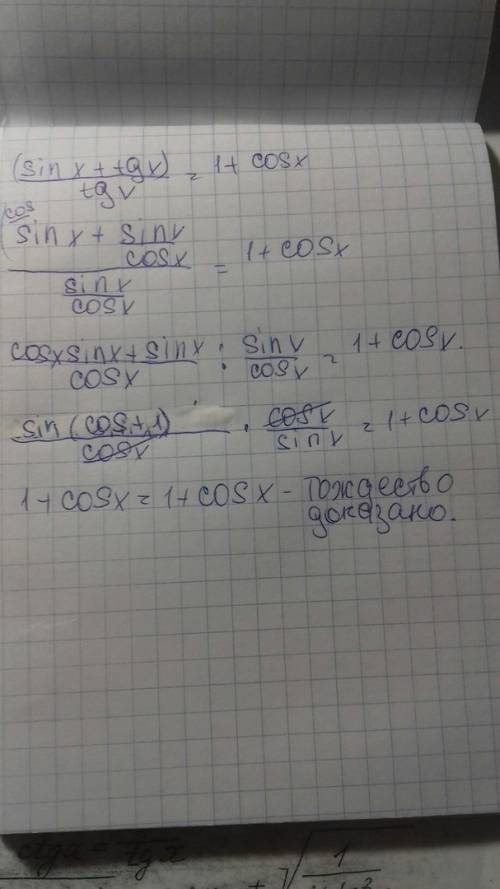 (sin x + tg x) / tg x = 1 + cosx
cos
(sin x + sin x / cosx) / (sin x / cosx) = 1 + cosx
(cosx sinx + sin x) / cosx : sin x / cosx = 1 + cosx.
sin (cos + 1) / cosx · cosx / sinx = 1 + cosx
1 + cosx = 1 + cosx - тождество
доказано.
ctgx = tgx
+ √ 1